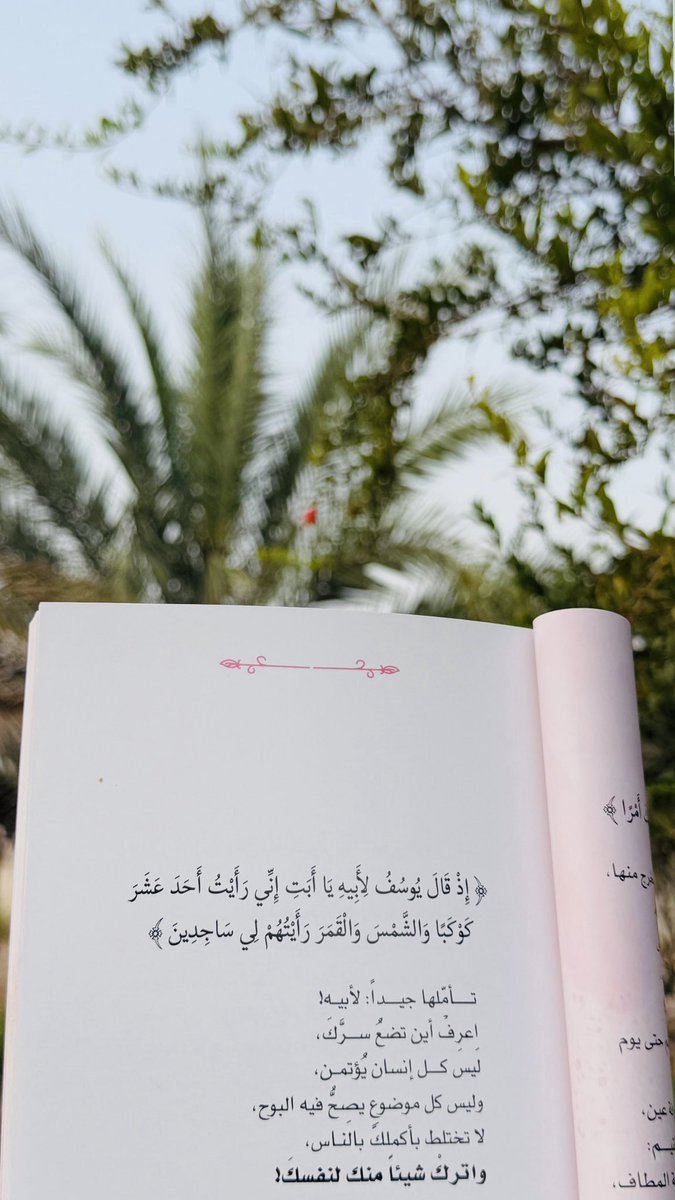 ﴿ إِذْ قَالَ يُوسُفُ لِأَبِيهِ يَا أَبَتِ إِنِّي رَأَيْتُ أَحَدَ عَشَرَ
كَوْكَبًا وَالشَّمْسَ وَالْقَمَرَ رَأَيْتُهُمْ لِي سَاجِدِينَ ﴾
تـــأمّلها جيـــداً: لأبيـه!
اِعرِفْ أين تضعُ ســرَّكَ،
ليس كــل إنسان يُؤتمـن،
وليس كل موضوعٍ يصِحُّ فيه البوح،
لا تختلط بأكملكَ بالنـاس،
واتركْ شيئاً منك لنفسكَ!
أَمْرًا ﴾
منها،
حتى يوم
عين،
المطاف،